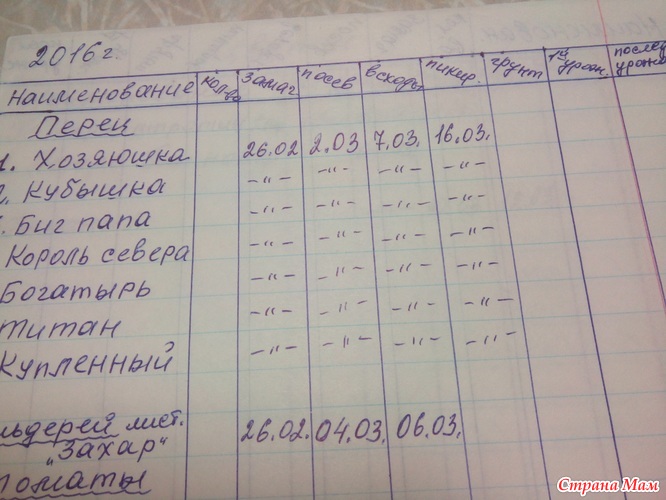 2016 г.
Наименование кол-во замач посев всходы пикир. грунт 1й урож. послед урожа
Перец
1. Хозяюшка 26.02 2.03 7.03. 16.03.
2. Кубышка -"- -"- -"- -"-
Биг папа -"- -"- -"- -"-
Король севера -"- -"- -"- -"-
Богатырь -"- -"- -"- -"-
Титан -"- -"- -"- -"-
Купленный -"- -"- -"- -"-
льдерей лист. 26.02. 04.03. 06.03.
"Захар"
томаты
Страна Мам